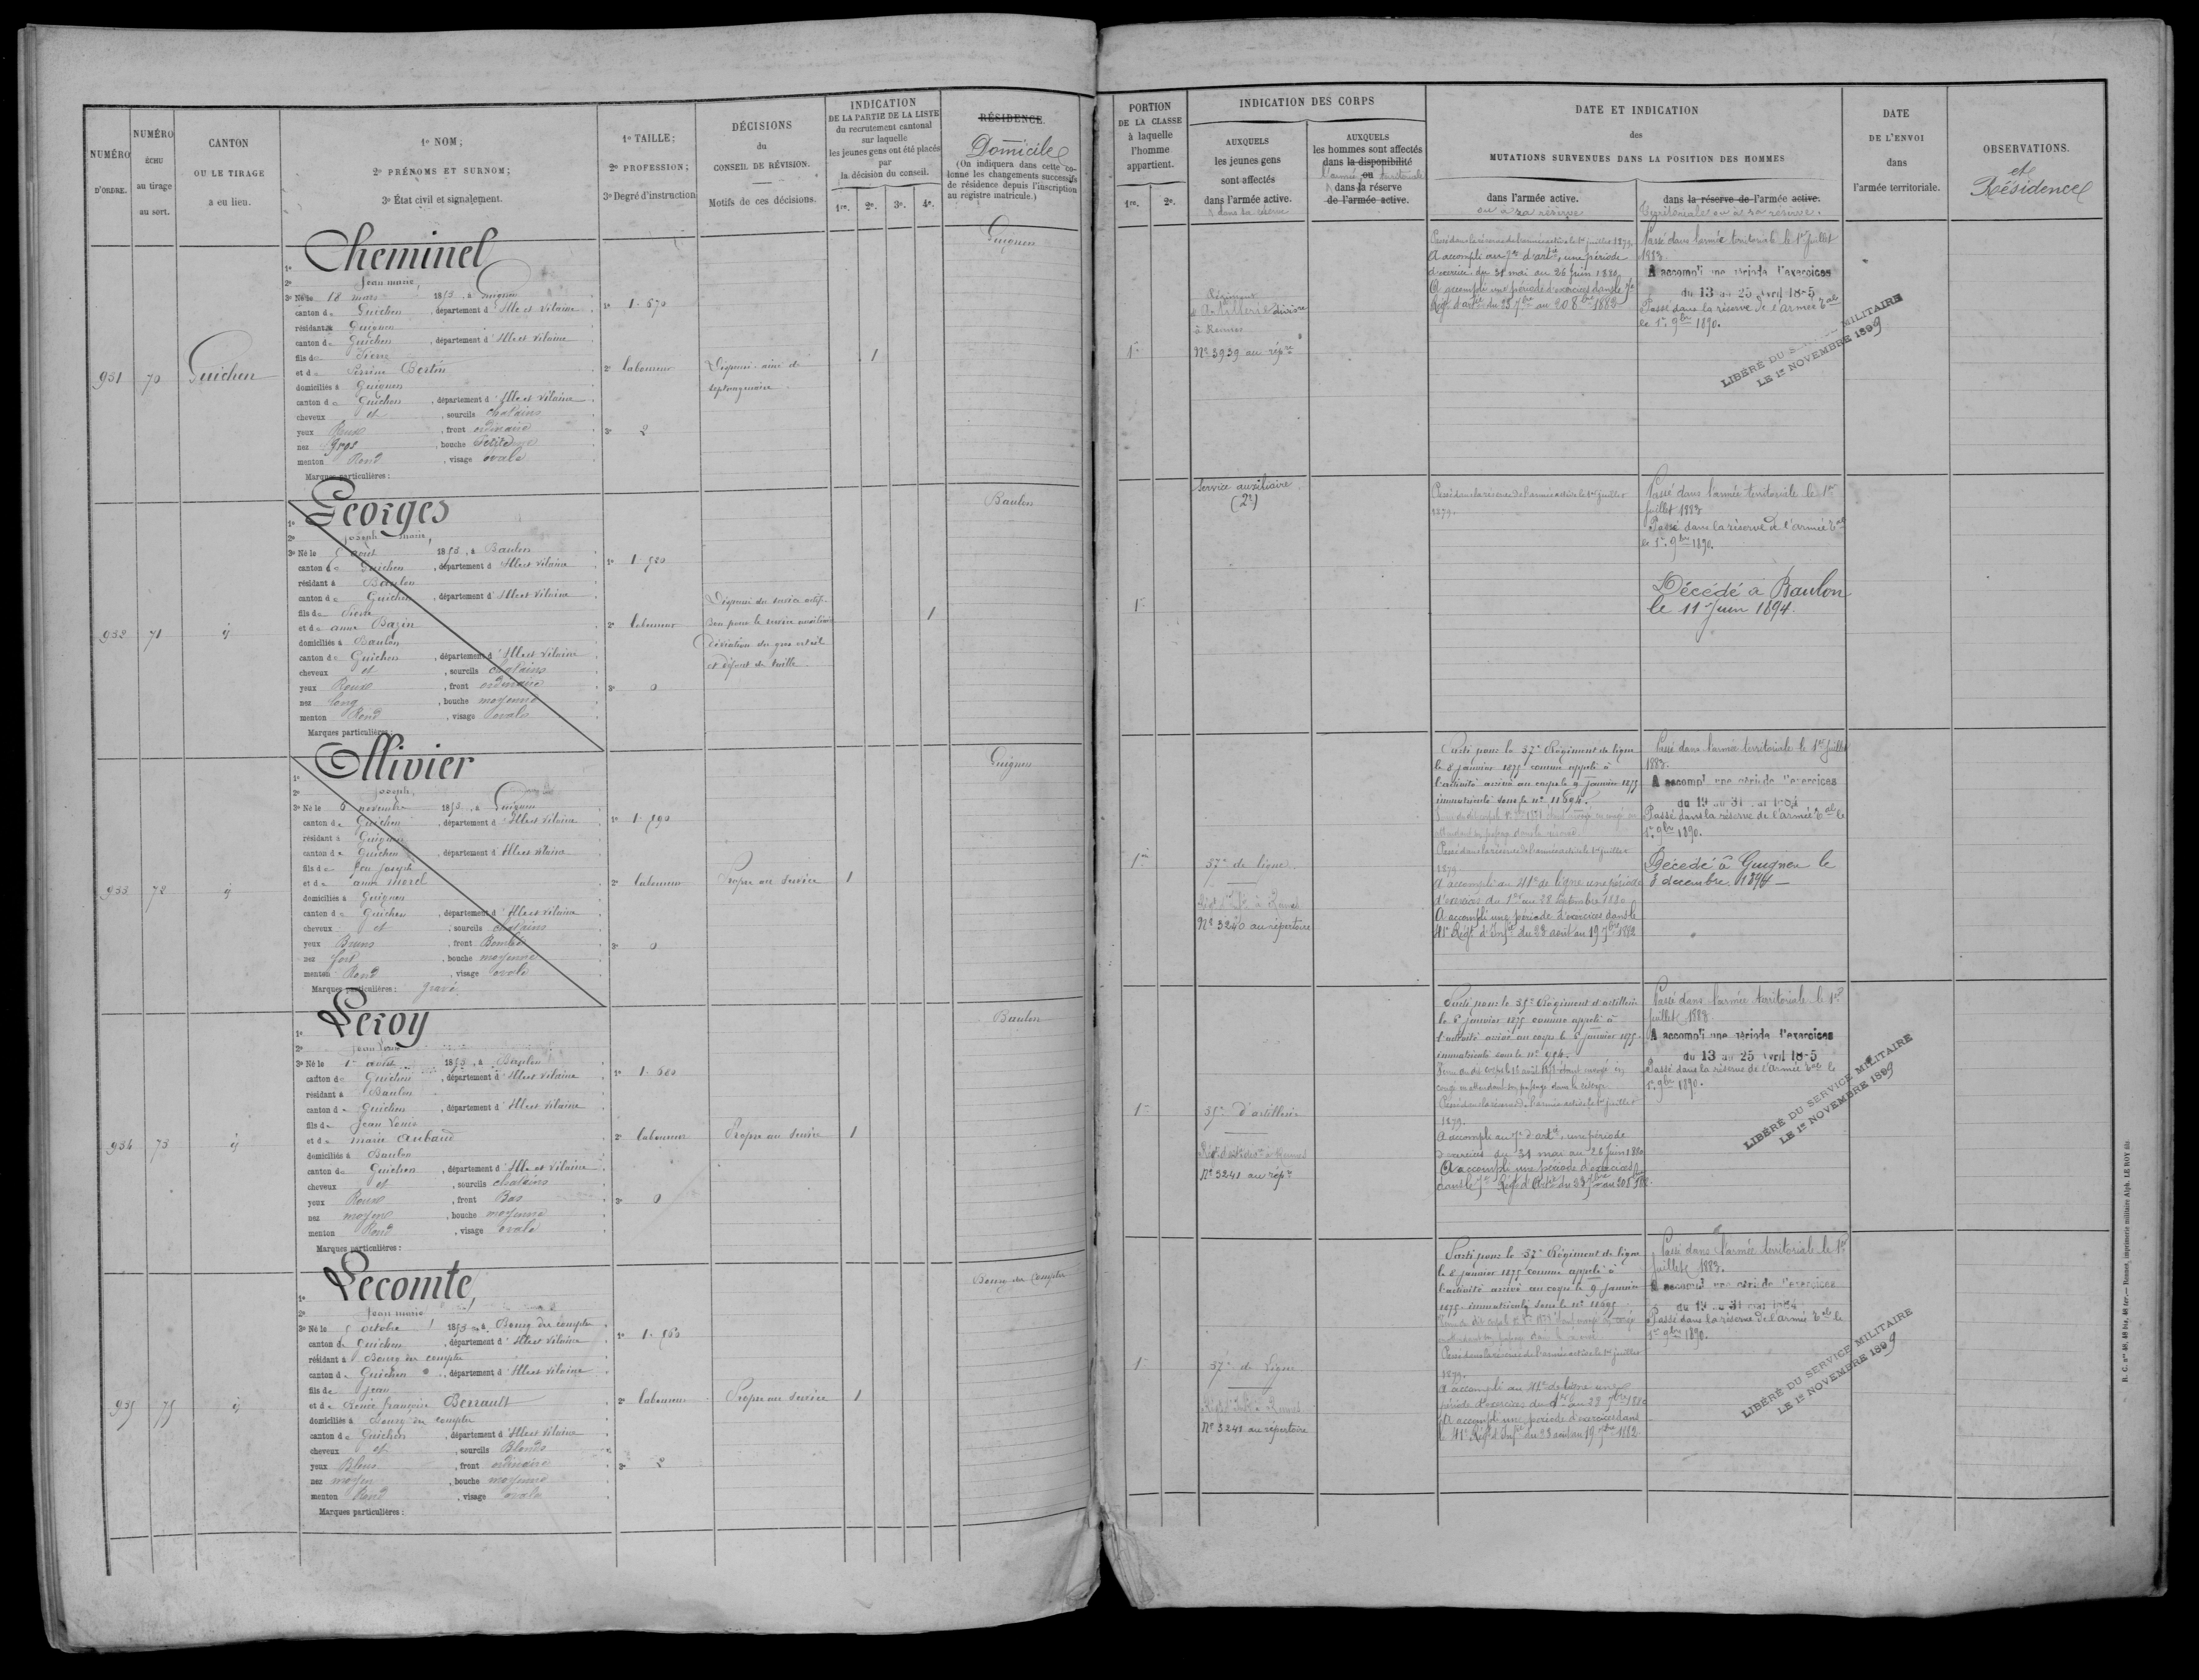 NUMÉRO D'ORDRE.
NUMÉRO ÉCHU au tirage au sort.
CANTON OU LE TIRAGE a eu lieu.
1º NOM;
2º PRÉNOMS ET SURNOM;
3º État civil et signalement.
1º TAILLE;
2º PROFESSION;
3º Degré d'instruction
DÉCISIONS du CONSEIL DE RÉVISION.
Motifs de ces décisions.
INDICATION
DE LA PARTIE DE LA LISTE
du recrutement cantonal
sur laquelle
les jeunes gens ont été placés
par
la décision du conseil.
1re. 2e. 3e. 4e.
RÉSIDENCE.
Domicile
(On indiquera dans cette colonne les changements successifs de résidence depuis l'inscription au registre matricule.)
PORTION DE LA CLASSE à laquelle l'homme appartient.
1re. 2e.
INDICATION DES CORPS
AUXQUELS les jeunes gens sont affectés dans l'armée active.
& dans la réserve
AUXQUELS les hommes sont affectés dans la disponibilité ou dans la réserve de l'armée active.
l'armée territoriale
DATE ET INDICATION
des
MUTATIONS SURVENUES DANS LA POSITION DES HOMMES
dans l'armée active.
ou à sa réserve
dans la réserve de l'armée active.
Territoriale ou à sa réserve.
DATE DE L'ENVOI dans l'armée territoriale.
OBSERVATIONS.
et Résidence
931
70
Guichen
1º Cheminel
2º Jean marie,
3º Né le 18 mars 1853, à Guignen
canton de Guichen, département d'Ille et Vilaine
résidant à Guignen
canton de Guichen, département d'Ille et Vilaine
fils de Pierre
et de Perrine Bertin
domiciliés à Guignen
canton de Guichen, département d'Ille et Vilaine
cheveux et, sourcils chatains
yeux Roux, front ordinaire
nez gros, bouche Petite
menton Rond, visage ovale
Marques particulières :
1º 1.670
2º laboureur
3º 2
Dispensé ainé de
septuagénaire
1
Guignen
1re
Régiment
d'Artillerie divisre
à Rennes
Nº 3939 au répre
Passé dans la réserve de l'armée active le 1er juillet 1879.
A accompli au 7e d'artie, une période
d'exercice du 31 mai au 26 Juin 1880.
A accompli une période d'exercices dans le 7e
Régt d'artie du 23 7bre au 20 8bre 1882
Passé dans l'armée territoriale le 1er juillet
1883.
A accompli une période d'exercices
du 13 au 25 Avril 18-5
Passé dans la réserve de l'armée Tale
le 1er 9bre 1890.
LIBÉRÉ DU S MILITAIRE
LE 1er NOVEMBRE 1899
932
71
ij
1º Georges
2º joseph marie,
3º Né le 5 aout 1853, à Baulon
canton de Guichen, département d'Ille et Vilaine
résidant à Baulon
canton de Guichen, département d'Ille et Vilaine
fils de Pierre
et de anne Bazin
domiciliés à Baulon
canton de Guichen, département d'Ille et Vilaine
cheveux et, sourcils chatains
yeux Roux, front ordinaire
nez long, bouche moyenne
menton Rond, visage ovale
Marques particulières :
1º 1.520
2º laboureur
3º 0
Dispensé du service actif.
Bon pour le service auxiliaire
Déviation du gros orteil
et défaut de taille
1
Baulon
1re
Service auxiliaire
(2e)
Passé dans la réserve de l'armée active le 1er juillet
1879.
Passé dans l'armée territoriale le 1er
Juillet 1883
Passé dans la réserve de l'armée Tale
le 1er 9bre 1890.
Décédé à Baulon
le 11 Juin 1894.
933
72
ij
1º Ollivier
2º joseph,
3º Né le 6 novembre 1853, à Guignen
canton de Guichen, département d'Ille et Vilaine
résidant à Guignen
canton de Guichen, département d'Ille et Vilaine
fils de feu joseph
et de anne morel
domiciliés à Guignen
canton de Guichen, département d'Ille et Vilaine
cheveux et, sourcils chatains
yeux Bruns, front Bombé
nez fort, bouche moyenne
menton Rond, visage ovale
Marques particulières : gravé
1º 1.590
2º laboureur
3º 0
Propre au service
1
Guignen
1re
57e de ligne
Nº 3240 au répertoire
Parti pour le 57e Régiment de ligne
le 8 janvier 1875 comme appelé à
l'activité arrivé au corps le 9 janvier 1875
immatriculé sous le nº 11694.
Passé dans la réserve de l'armée active le 1er juillet
1879
A accompli au 41e de ligne une période
d'exercices du 1er au 28 Septembre 1880
A accompli une période d'exercices dans le
41e Régt d'Infie du 23 aout au 19 7bre 1882
Passé dans l'armée territoriale le 1er Juillet
1883.
A accompli une période d'exercices
du 19 au 31 mai 1884
Passé dans la réserve de l'armée Tale le
1er 9bre 1890.
Décédé à Guignen le
8 décembre 1894
934
73
ij
1º Leroy
2º Jean Louis
3º Né le 1er août 1853, à Baulon
canton de Guichen, département d'Ille et Vilaine
résidant à Baulon
canton de Guichen, département d'Ille et Vilaine
fils de Jean Louis
et de marie Aubaud
domiciliés à Baulon
canton de Guichen, département d'Ille et Vilaine
cheveux et, sourcils chatains
yeux Roux, front Bas
nez moyen, bouche moyenne
menton Rond, visage ovale
Marques particulières :
1º 1.680
2º laboureur
3º 0
Propre au service
1
Baulon
1re
35e d'artillerie
Nº 3241 au répre
Parti pour le 35e Régiment d'artillerie
le 6 janvier 1875 comme appelé à
l'activité arrivé au corps le 6 janvier 1875.
immatriculé sous le nº 954.
congé en attendant son passage dans la réserve
Passé dans la réserve de l'armée active le 1er juillet
1879.
A accompli au 7e d'artie, une période
d'exercices du 31 mai au 26 juin 1880
A accompli une période d'exercices
dans le 7e Régt d'Artie du 23 7bre au 20 8bre 1882
Passé dans l'armée territoriale le 1er
juillet 1883.
A accompli une période d'exercices
du 13 au 25 Avril 18-5
Passé dans la réserve de l'armée Tale le
1er 9bre 1890.
LIBÉRÉ DU SERVICE MILITAIRE
LE 1er NOVEMBRE 1899
935
75
ij
1º Lecomte,
2º Jean marie
3º Né le 5 octobre 1853, à Bourg des comptes
canton de Guichen, département d'Ille et Vilaine
résidant à Bourg des comptes
canton de Guichen, département d'Ille et Vilaine
fils de jean
et de Renée françoise Berrault
domiciliés à Bourg des comptes
canton de Guichen, département d'Ille et Vilaine
cheveux et, sourcils Blonds
yeux Bleus, front ordinaire
nez moyen, bouche moyenne
menton Rond, visage ovale
Marques particulières :
1º 1.560
2º laboureur
3º 2
Propre au service
1
Bourg des Comptes
1re
57e de Ligne
Nº 3241 au répertoire
Parti pour le 57e Régiment de ligne
le 8 janvier 1875 comme appelé à
l'activité arrivé au corps le 9 janvier
1875. immatriculé sous le nº 11695
Passé dans la réserve de l'armée active le 1er juillet
1879.
A accompli au 41e de ligne une
période d'exercices du 1er au 28 7bre 1880
A accompli une période d'exercices dans
le 41e Régt d'Infie du 23 aout au 19 7bre 1882
Passé dans l'armée territoriale le 1er
juillet 1883.
A accompli une période d'exercices
du 19 au 31 mai 1884
Passé dans la réserve de l'armée Tale le
1er 9bre 1890.
LIBÉRÉ DU SERVICE MILITAIRE
LE 1er NOVEMBRE 1899
R. C. nos 48, 48 bis, 48 ter. — Rennes, imprimerie militaire Alph. LE ROY fils